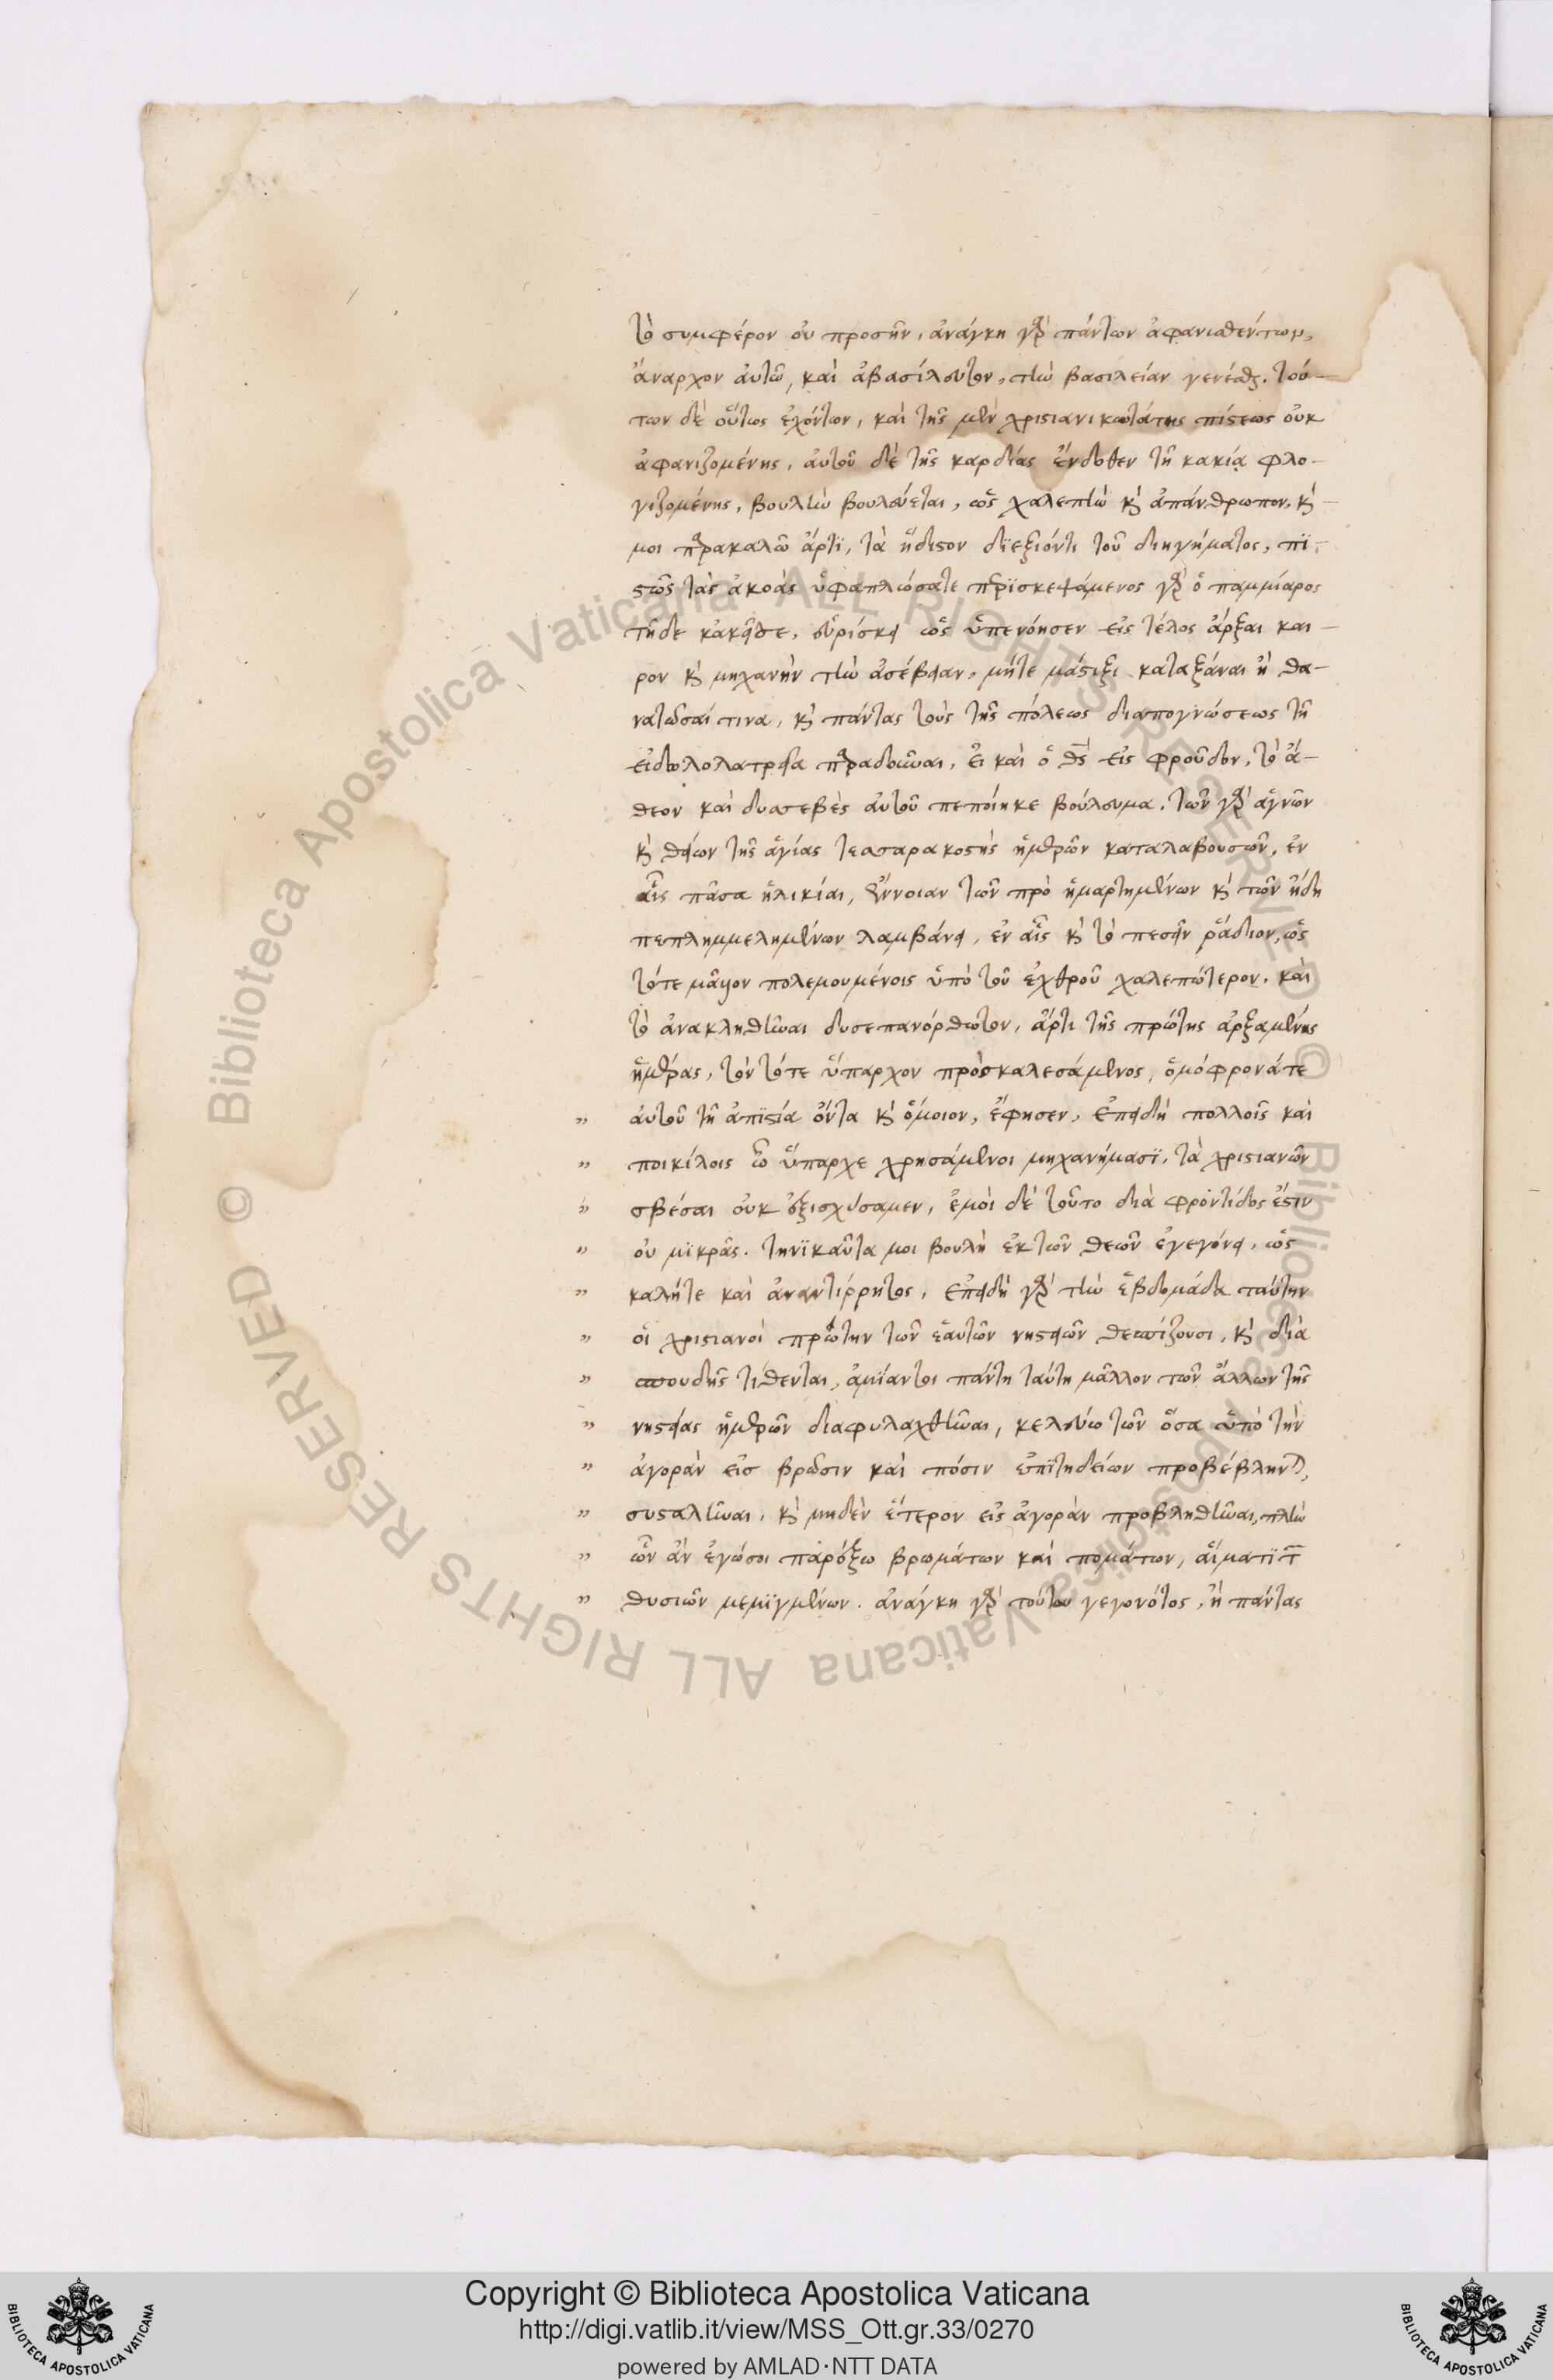 τὸ συμφέρον οὐ προσῆν, ἀνάγκη γὰρ πάντων ἀφανισθέντων,
ἄναρχον ἀυτῶ, καὶ ἀβασίλευτον, τὴν βασιλείαν γενέσθαι. τού-
των δὲ οὕτως ἐχόντων, καὶ τῆς μὲν χριστιανικωτάτης πίστεως οὐκ
ἀφανιζομένης, ἀυτοῦ δὲ τῆς καρδίας ἔνδοθεν τῆ κακία φλο-
γιζομένης, βουλὴν βουλεύεται, ὡς χαλεπὴν καὶ ἀπάνθρωπον. καὶ
μοι παρακαλῶ ἄρτϊ, τὰ ἥδιστον διεξιόντι τοῦ διηγήματος, πι-
στῶς τὰς ἀκοὰς ὑφαπλώσατε περισκεψάμενος γὰρ ὁ παμμίαρος
τῆδε κἀκεῖσε, εὑρίσκει ὡς ὑπενόησεν εἰς τέλος ἄρξαι και-
ρον καὶ μηχανὴν τὴν ἀσέβειαν, μήτε μάστιξι καταξάναι ἢ θα-
νατῶσαί τινα, καὶ πάντας τοὺς τῆς πόλεως διαπογνώσεως τῆ
εἰδωλολατρεία παραδοῦναι, εἰ καὶ ὁ θς εἰς φροῦδον, τὸ ἄ-
θεον καὶ δυσσεβὲς ἀυτοῦ πεποίηκε βούλευμα. τῶν γὰρ ἁγνῶν
καὶ θείων τῆς ἁγίας τεσσαρακοστῆς ἡμερῶν καταλαβουσῶν, ἐν
αἷς πᾶσα ἡλικία, ἔννοιαν τῶν προ ἡμαρτημένων καὶ τῶν ἤδη
πεπλημμελημένων λαμβάνει, ἐν αἷς καὶ τὸ πεσεῖν ῥάδιον, ὡς
τότε μᾶλλον πολεμουμένοις ὑπὸ τοῦ ἐχθροῦ χαλεπώτερον. καὶ
τὸ ἀνακληθῆναι δυσεπανόρθωτον, ἄρτι τῆς πρώτης ἀρξαμένης
ἡμέρας, τὸν τότε ὕπαρχον προσκαλεσάμενος, ὁμόφρονάτε
ἀυτοῦ τῆ ἀπϊστία ὄντα καὶ ὅμοιον, ἔφησεν, ἐπειδὴ πολλοῖς καὶ
ποικίλοις ὦ ὕπαρχε χρησάμενοι μηχανήμασϊ, τὰ χριστιανῶν
σβέσαι οὐκ ἐξισχύσαμεν, ἐμοὶ δὲ τοῦτο διὰ φροντίδος ἐστὶν
οὐ μϊκρᾶς. τηνϊκαῦτα μοι βουλὴ ἐκ τῶν θεῶν ἐγεγόνει, ὡς
καλήτε καὶ ἀναντίρρητος, ἐπειδὴ γὰρ τὴν ἑβδομάδα ταύτην
οἱ χριστιανοὶ πρώτην τῶν ἑαυτῶν νηστειῶν θεσπίζουσι, καὶ διὰ
σπουδῆς τίθενται, ἀμίαντοι πάντη ταύτη μᾶλλον τῶν ἄλλων τῆς
νηστείας ἡμερῶν διαφυλαχθῆναι, κελεύω τῶν ὅσα ὑπὸ τὴν
ἀγορὰν εἰσ βρῶσιν καὶ πόσιν ἐπϊτηδείων προβέβληνται,
συσταλῆναι, καὶ μηδὲν ἕτερον εἰς ἀγορὰν προβληθῆναι, πλὴν
ὧν ἂν ἐγώσοι παρέξω βρωμάτων καὶ πομάτων, αἵματϊ τῶν
θυσιῶν μεμϊγμένων. ἀνάγκη γὰρ τούτου γεγονότος, ἢ πάντας
Copyright © Biblioteca Apostolica Vaticana
http://digi.vatlib.it/view/MSS_Ott.gr.33/0270
powered by AMLAD·NTT DATA
BIBLIOTECA APOSTOLICA VATICANA
BIBLIOTECA APOSTOLICA VATICANA
© Biblioteca Apostolica Vaticana ALL RIGHTS RESERVED
© Biblioteca Apostolica Vaticana ALL RIGHTS RESERVED